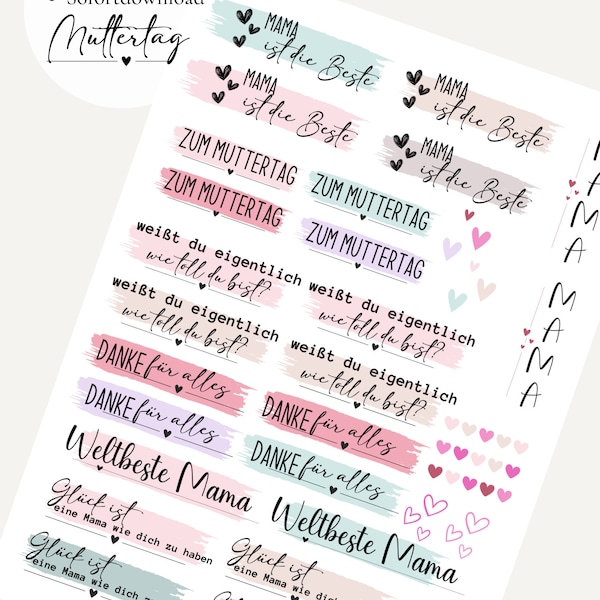 • Sofortdownload
Muttertag
MAMA
ist die Beste
MAMA
ist die Beste
MAMA
ist die Beste
MAMA
ist die Beste
ZUM MUTTERTAG
ZUM MUTTERTAG
ZUM MUTTERTAG
ZUM MUTTERTAG
weißt du eigentlich
wie toll du bist?
weißt du eigentlich
wie toll du bist?
weißt du eigentlich
wie toll du bist?
weißt du eigentlich
wie toll du bist?
DANKE für alles
DANKE für alles
DANKE für alles
DANKE für alles
Weltbeste Mama
Weltbeste Mama
Glück ist
eine Mama wie dich zu haben
Glück ist
eine Mama wie dich z
Glück ist
eine Mama wie dich
MAMA
MAMA